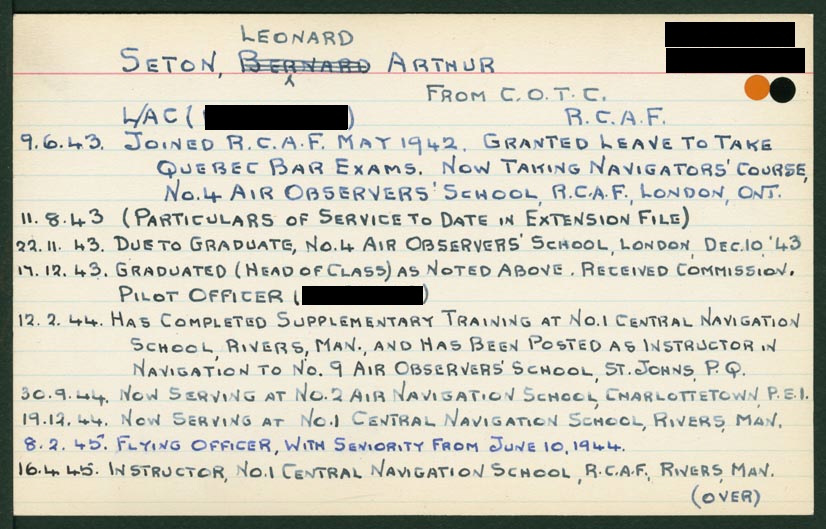 LEONARD
SETON, BERNARD ARTHUR
FROM C.O.T.C.
L/AC ( ) R.C.A.F.
9.6.43. JOINED R.C.A.F. MAY 1942. GRANTED LEAVE TO TAKE
QUEBEC BAR EXAMS. NOW TAKING NAVIGATORS' COURSE,
NO.4 AIR OBSERVERS' SCHOOL, R.C.A.F., LONDON, ONT.
11.8.43 (PARTICULARS OF SERVICE TO DATE IN EXTENSION FILE)
22.11.43. DUE TO GRADUATE, NO.4 AIR OBSERVERS' SCHOOL, LONDON, DEC.10,'43
17.12.43. GRADUATED (HEAD OF CLASS) AS NOTED ABOVE. RECEIVED COMMISSION.
PILOT OFFICER ( )
12.2.44. HAS COMPLETED SUPPLEMENTARY TRAINING AT NO.1 CENTRAL NAVIGATION
SCHOOL, RIVERS, MAN., AND HAS BEEN POSTED AS INSTRUCTOR IN
NAVIGATION TO NO.9 AIR OBSERVERS' SCHOOL, ST. JOHNS, P.Q.
30.9.44. NOW SERVING AT NO.2 AIR NAVIGATION SCHOOL, CHARLOTTETOWN, P.E.I.
19.12.44. NOW SERVING AT NO.1 CENTRAL NAVIGATION SCHOOL, RIVERS, MAN.
8.2.45. FLYING OFFICER, WITH SENIORITY FROM JUNE 10, 1944.
16.4.45. INSTRUCTOR, NO.1 CENTRAL NAVIGATION SCHOOL, R.C.A.F., RIVERS, MAN.
(OVER)